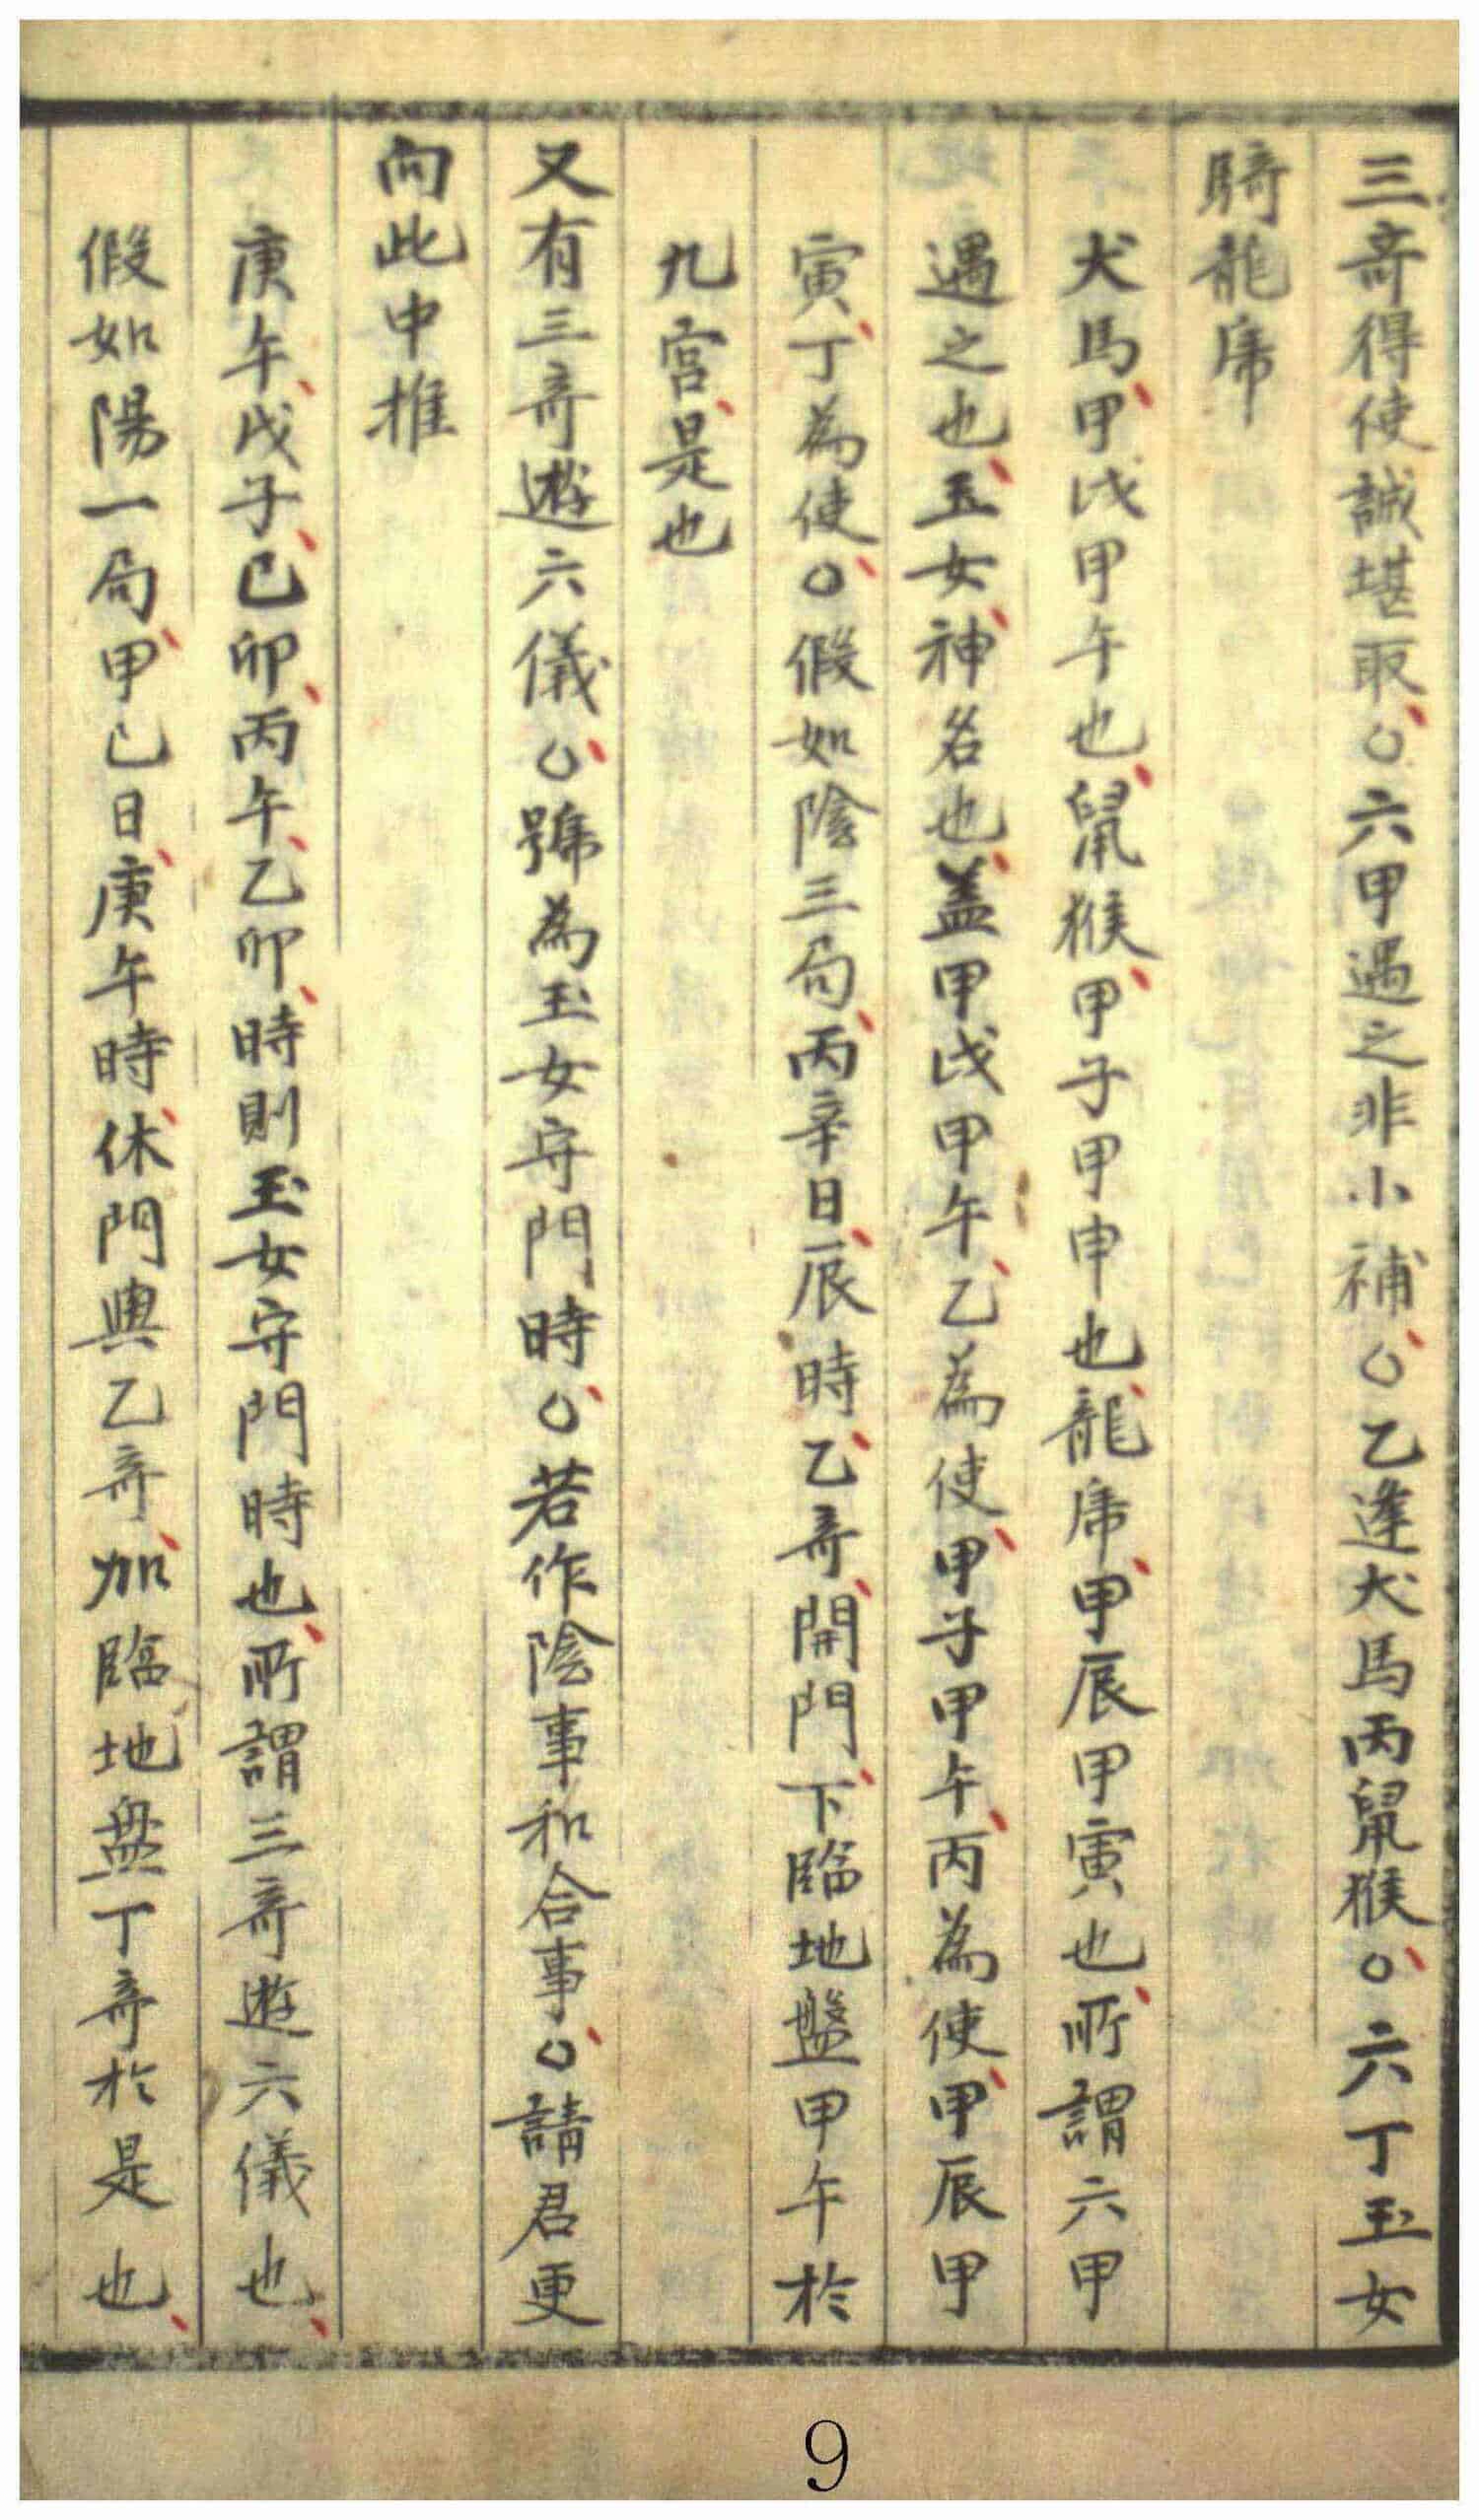 三竒得使誠堪取〇六甲遇之非小補〇乙逢犬馬丙鼠猴〇六丁玉女
騎龍虎
犬馬甲戌甲午也鼠猴甲子甲申也龍虎甲辰甲寅也所謂六甲
遇之也玉女神名也盖甲戌甲午乙為使甲子甲午丙為使甲辰甲
寅丁為使〇假如陰三局丙辛日辰時乙竒開門下臨地盤甲午於
九宮是也
又有三竒遊六儀〇號為玉女守門時〇若作陰事和合事〇請君更
向此中推
庚午戊子己卯丙午乙卯時則玉女守門時也所謂三竒遊六儀也
假如陽一局甲己日庚午時休門與乙竒加臨地盘丁竒於是也
9